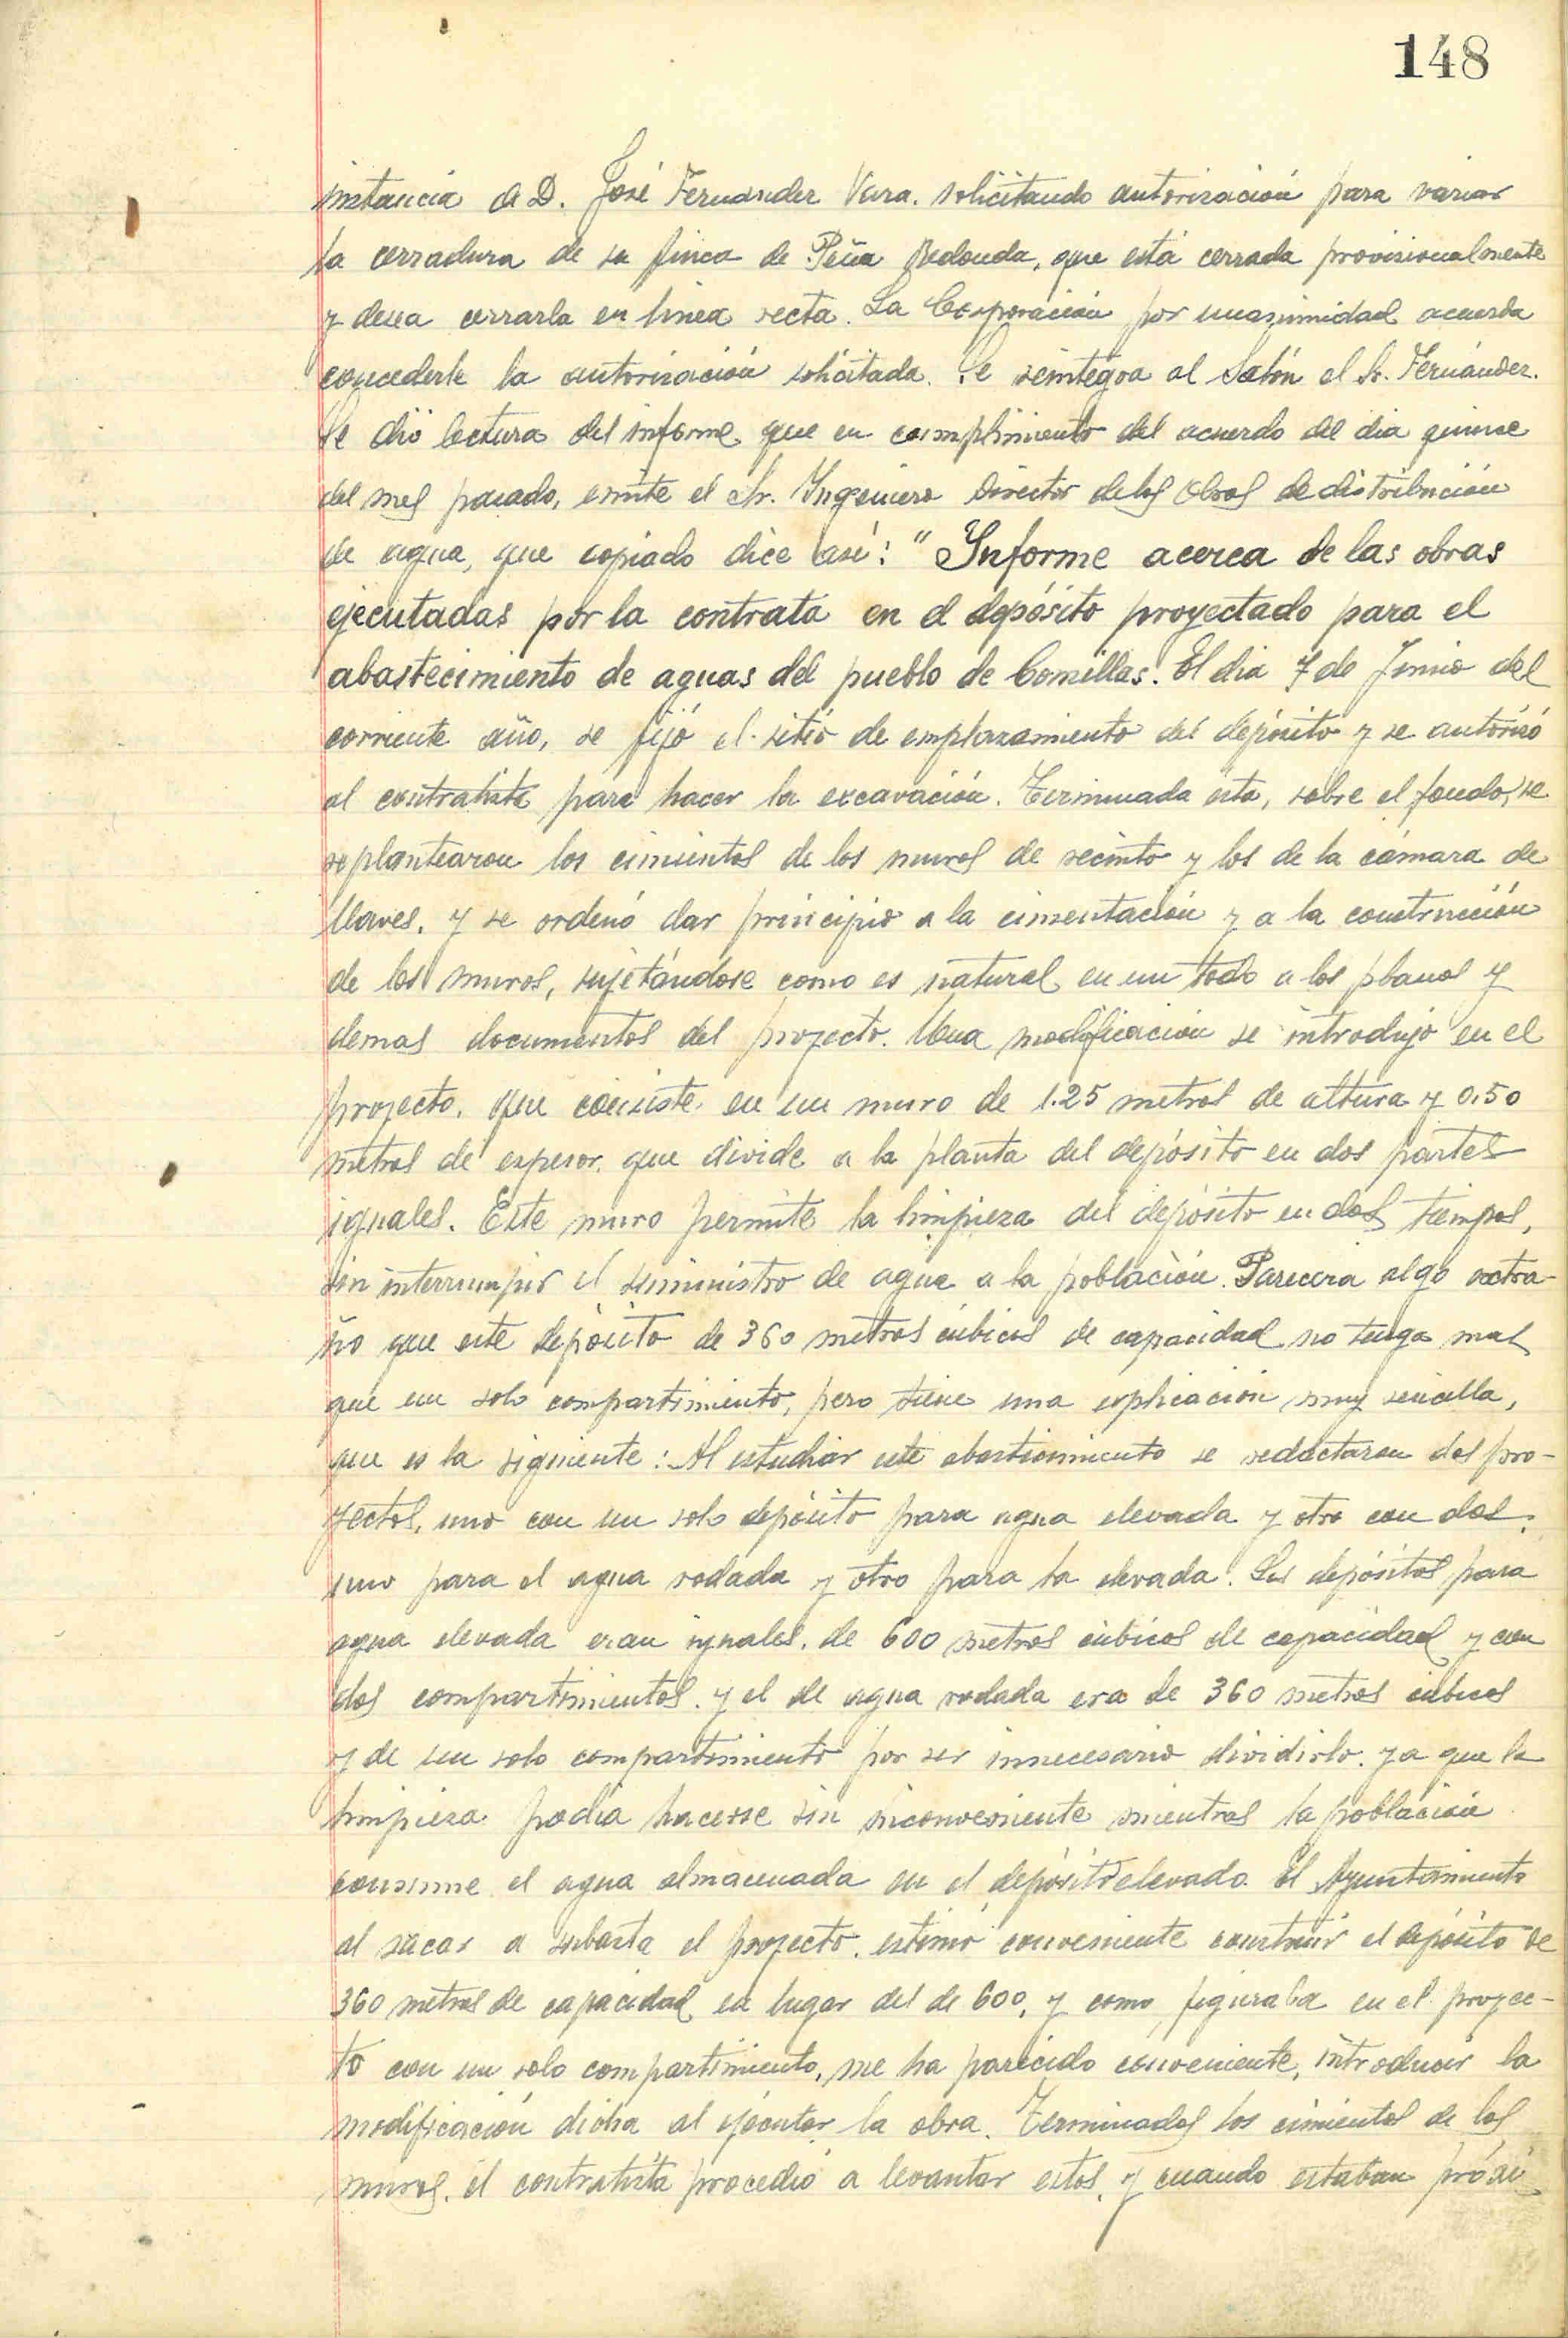 148
instancia de D. José Fernández Vara. solicitando autorización para variar
la cerradura de su finca de Peña Redonda, que está cerrada provisionalmente
y desea cerrarla en linea recta. La Corporación por unanimidad acuerda
concederle la autorización solicitada. Se reintegra al Salón el Sr. Fernández.
Se dió lectura del informe que en cumplimiento del acuerdo del dia quince
del mes pasado, emite el Sr. Ingeniero Director de las Obras de distribución
de agua, que copiado dice así: "Informe acerca de las obras
ejecutadas por la contrata en el depósito proyectado para el
abastecimiento de aguas del pueblo de Comillas. El dia 7 de Junio del
corriente año, se fijó el sitio de emplazamiento del depósito y se autorizó
al contratista para hacer la excavación. Terminada esta, sobre el fondo, se
replantearon los cimientos de los muros de recinto y los de la cámara de
llaves, y se ordenó dar principio a la cimentación y a la construcción
de los muros, sujetándose como es natural en un todo a los planos y
demas documentos del proyecto. Una modificación se introdujo en el
proyecto, que consiste en un muro de 1.25 metros de altura y 0.50
metros de espesor, que divide a la planta del depósito en dos partes
iguales. Este muro permite la limpieza del depósito en dos tiempos,
sin interrumpir el suministro de agua a la población. Parecera algo extra-
ño que este depósito de 360 metros cúbicos de capacidad no tenga mas
que un solo compartimiento, pero tiene una explicación muy sencilla,
que es la siguiente: Al estudiar este abastecimiento se redactaron dos pro-
yectos, uno con un solo depósito para agua elevada y otro con dos,
uno para el agua rodada y otro para la elevada. Los depósitos para
agua elevada eran iguales, de 600 metros cúbicos de capacidad y con
dos compartimientos, y el de agua rodada era de 360 metros cúbicos
y de un solo compartimiento por ser innecesario dividirlo, ya que la
limpieza podía hacerse sin inconveniente mientras la población
consume el agua almacenada en el depósito elevado. El Ayuntamiento
al sacar a subasta el proyecto, estimó conveniente construir el depósito de
360 metros de capacidad en lugar del de 600, y como figuraba en el proyec-
to con un solo compartimiento, me ha parecido conveniente, introducir la
modificación dicha al ejecutar la obra. Terminados los cimientos de los
muros, el contratista procedió a levantar estos, y cuando estaban próxi